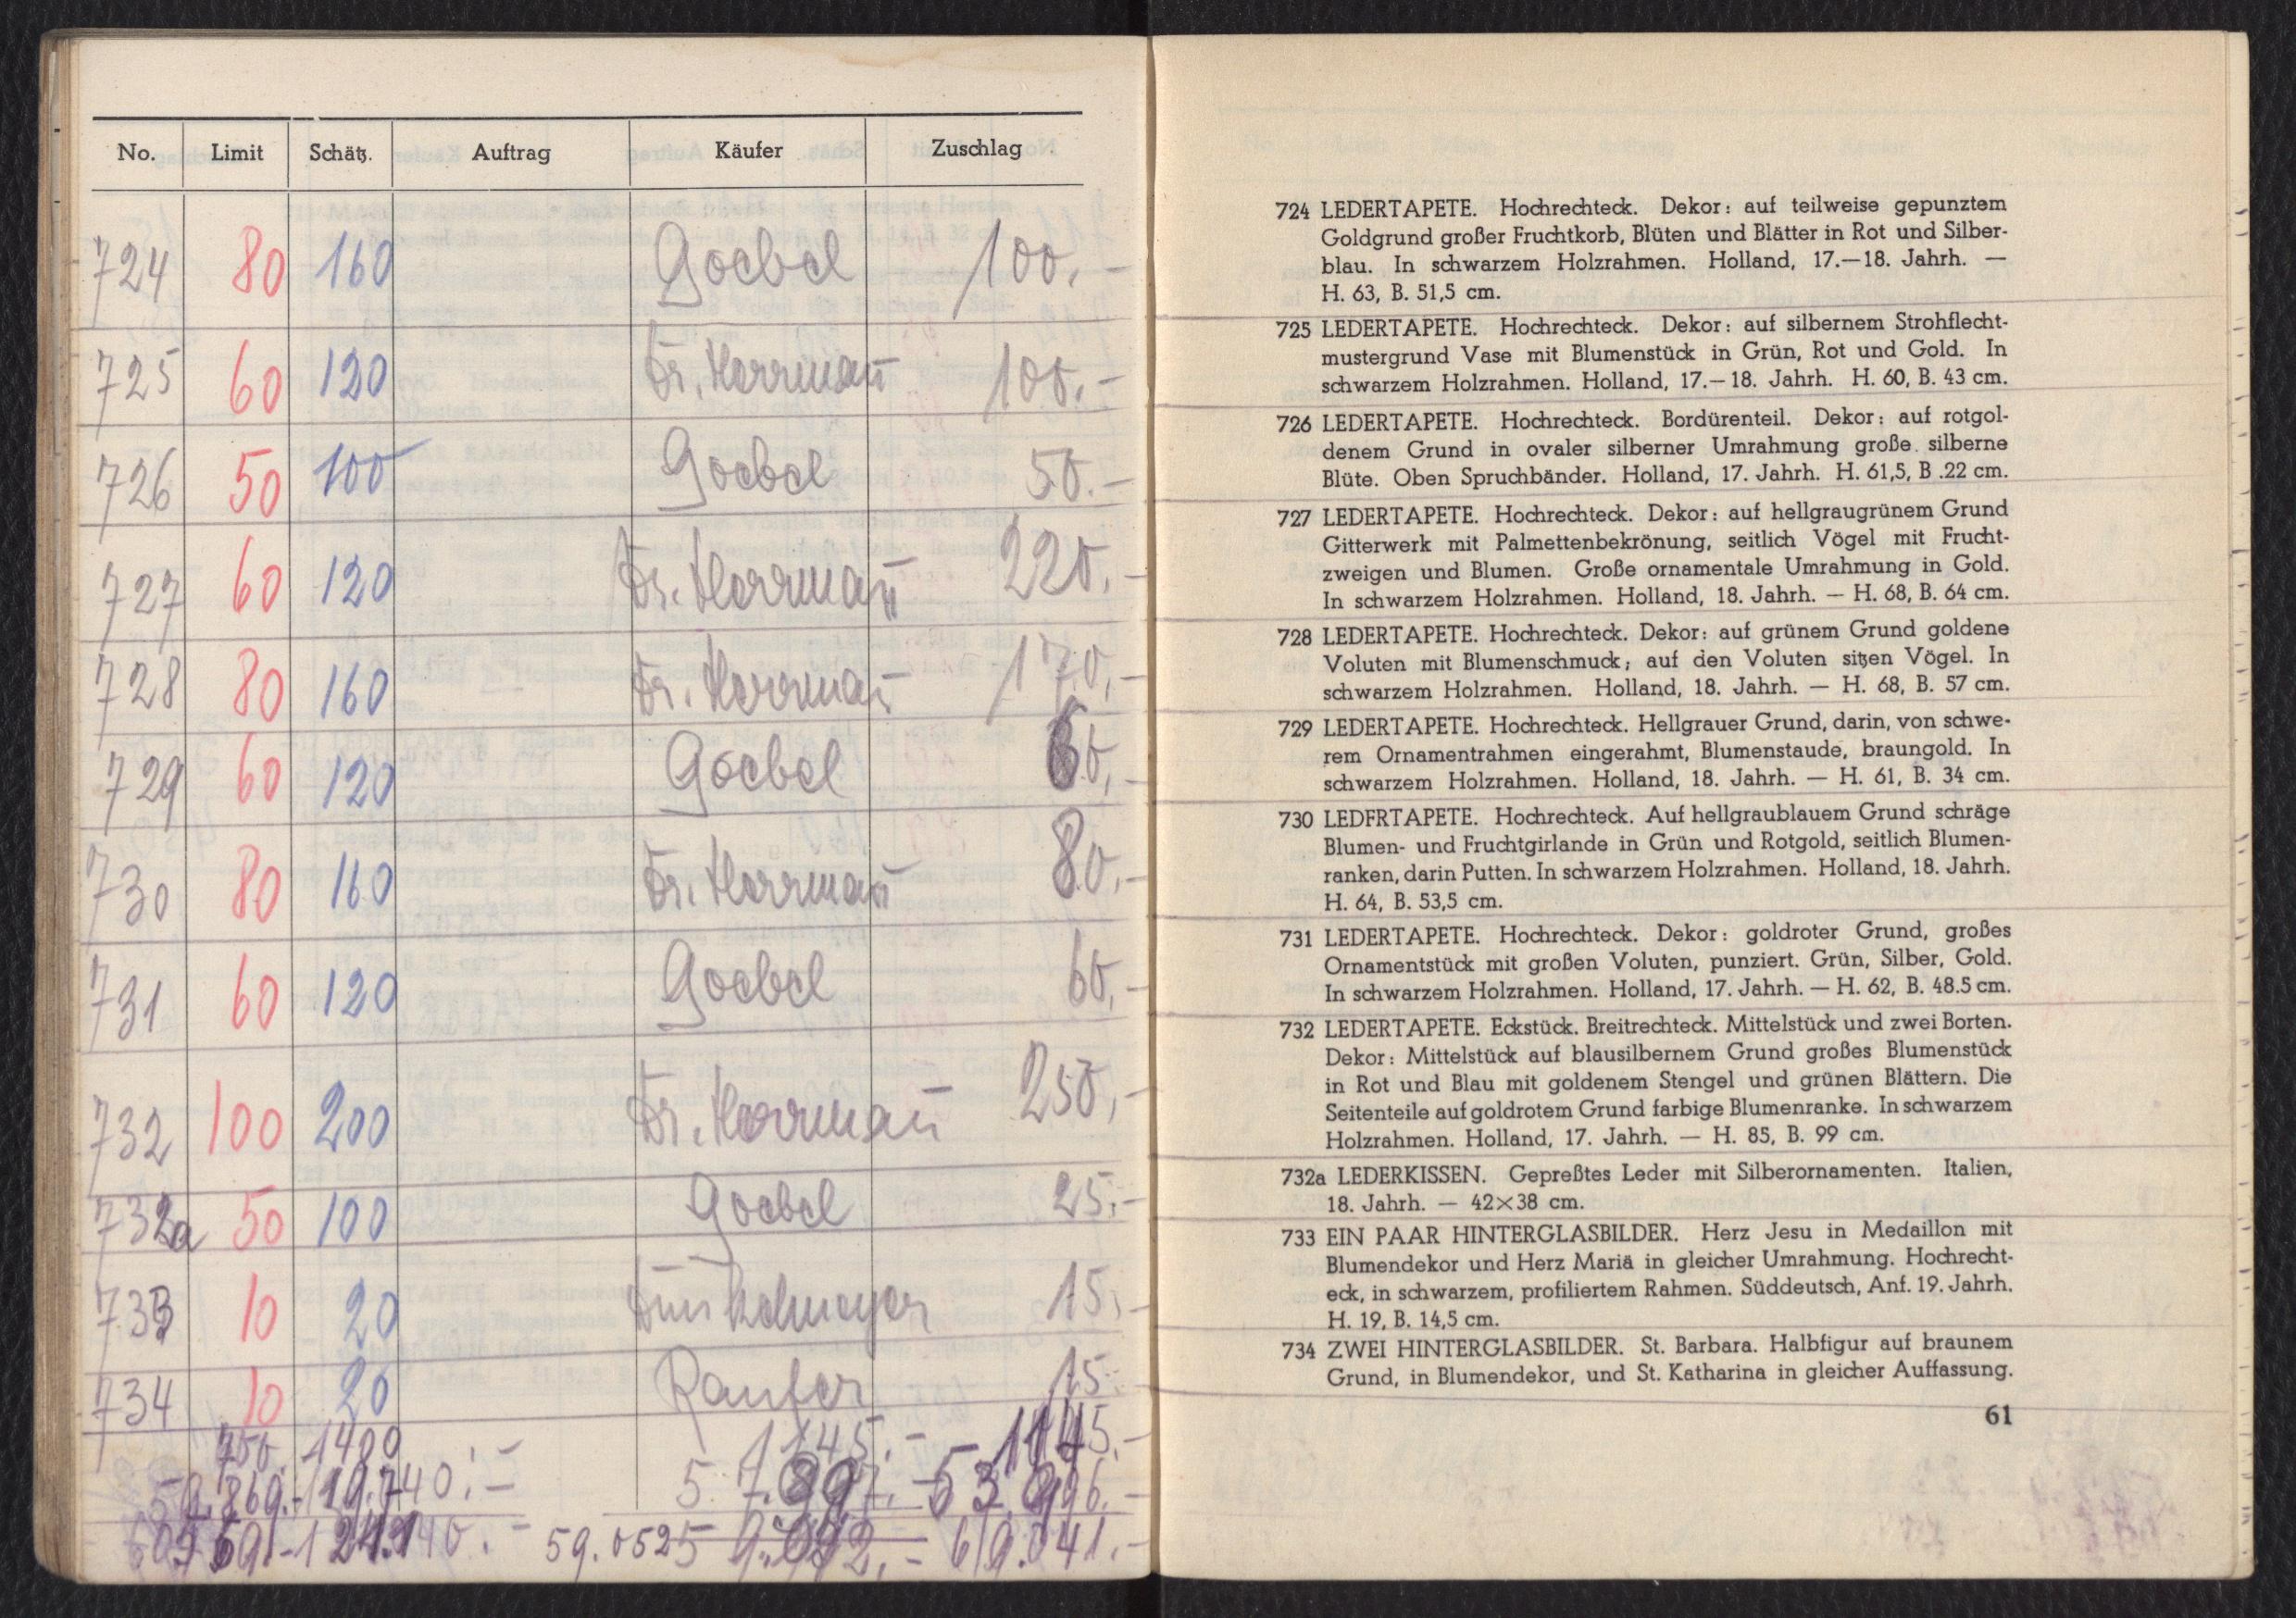 No. Limit Schätz. Auftrag Käufer Zuschlag
724 80 160 Goebel 100.-
725 60 120 Dr. Herrmann 100.-
726 50 100 Goebel 50.-
727 60 120 Dr. Herrmann 220.-
728 80 160 Dr. Herrmann 170.-
729 60 120 Goebel 60.-
730 80 160 Dr. Herrmann 80.-
731 60 120 Goebel 60.-
732 100 200 Dr. Herrmann 250.-
732a 50 100 Goebel 25.-
733 10 20 Dinkelmeyer 15.-
734 10 20 Ranfer 15.-
1145.- 1145.-
724 LEDERTAPETE. Hochrechteck. Dekor: auf teilweise gepunztem
Goldgrund großer Fruchtkorb, Blüten und Blätter in Rot und Silber-
blau. In schwarzem Holzrahmen. Holland, 17.—18. Jahrh. —
H. 63, B. 51,5 cm.
725 LEDERTAPETE. Hochrechteck. Dekor: auf silbernem Strohflecht-
mustergrund Vase mit Blumenstück in Grün, Rot und Gold. In
schwarzem Holzrahmen. Holland, 17.—18. Jahrh. H. 60, B. 43 cm.
726 LEDERTAPETE. Hochrechteck. Bordürenteil. Dekor: auf rotgol-
denem Grund in ovaler silberner Umrahmung große silberne
Blüte. Oben Spruchbänder. Holland, 17. Jahrh. H. 61,5, B .22 cm.
727 LEDERTAPETE. Hochrechteck. Dekor: auf hellgraugrünem Grund
Gitterwerk mit Palmettenbekrönung, seitlich Vögel mit Frucht-
zweigen und Blumen. Große ornamentale Umrahmung in Gold.
In schwarzem Holzrahmen. Holland, 18. Jahrh. — H. 68, B. 64 cm.
728 LEDERTAPETE. Hochrechteck. Dekor: auf grünem Grund goldene
Voluten mit Blumenschmuck; auf den Voluten sitzen Vögel. In
schwarzem Holzrahmen. Holland, 18. Jahrh. — H. 68, B. 57 cm.
729 LEDERTAPETE. Hochrechteck. Hellgrauer Grund, darin, von schwe-
rem Ornamentrahmen eingerahmt, Blumenstaude, braungold. In
schwarzem Holzrahmen. Holland, 18. Jahrh. — H. 61, B. 34 cm.
730 LEDFRTAPETE. Hochrechteck. Auf hellgraublauem Grund schräge
Blumen- und Fruchtgirlande in Grün und Rotgold, seitlich Blumen-
ranken, darin Putten. In schwarzem Holzrahmen. Holland, 18. Jahrh.
H. 64, B. 53,5 cm.
731 LEDERTAPETE. Hochrechteck. Dekor: goldroter Grund, großes
Ornamentstück mit großen Voluten, punziert. Grün, Silber, Gold.
In schwarzem Holzrahmen. Holland, 17. Jahrh. — H. 62, B. 48.5 cm.
732 LEDERTAPETE. Eckstück. Breitrechteck. Mittelstück und zwei Borten.
Dekor: Mittelstück auf blausilbernem Grund großes Blumenstück
in Rot und Blau mit goldenem Stengel und grünen Blättern. Die
Seitenteile auf goldrotem Grund farbige Blumenranke. In schwarzem
Holzrahmen. Holland, 17. Jahrh. — H. 85, B. 99 cm.
732a LEDERKISSEN. Gepreßtes Leder mit Silberornamenten. Italien,
18. Jahrh. — 42×38 cm.
733 EIN PAAR HINTERGLASBILDER. Herz Jesu in Medaillon mit
Blumendekor und Herz Mariä in gleicher Umrahmung. Hochrecht-
eck, in schwarzem, profiliertem Rahmen. Süddeutsch, Anf. 19. Jahrh.
H. 19, B. 14,5 cm.
734 ZWEI HINTERGLASBILDER. St. Barbara. Halbfigur auf braunem
Grund, in Blumendekor, und St. Katharina in gleicher Auffassung.
61